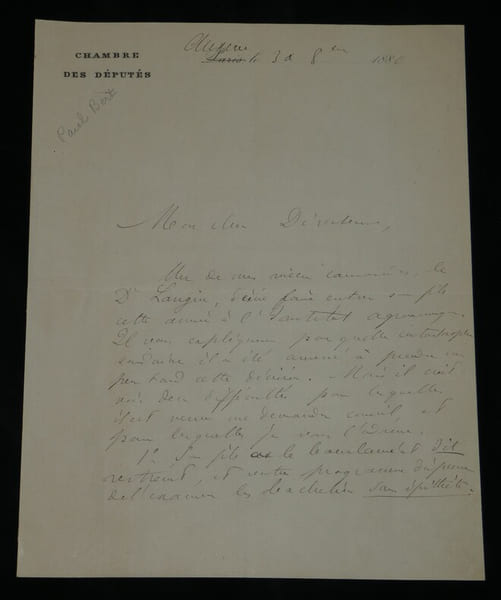 CHAMBRE
DES DÉPUTÉS
Auxerre
Paris le 3 8bre 1880
Paul Bert
Mon cher Directeur,
Un de mes vieux camarades, le
Dr Langin, désire faire entrer son fils
cette année à l'Institut agronomique.
Il vous expliquera par quelle catastrophe
soudaine il a été amené à prendre un
peu tard cette décision. - Mais il croit
voir deux difficultés pour lesquelles
il est venu me demander conseil, et
pour lesquelles je vous l'adresse.
1° Son fils a le baccalauréat dit
restreint, et votre programme dispense
de l'examen les bacheliers sans épithète.